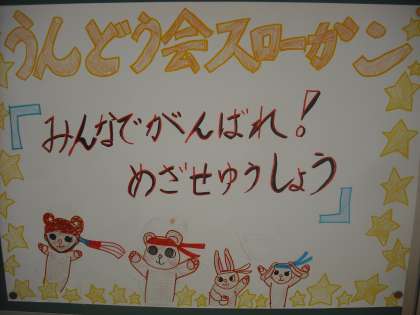 うんどう会スローガン
『みんなでがんばれ!
めざせゆうしょう』